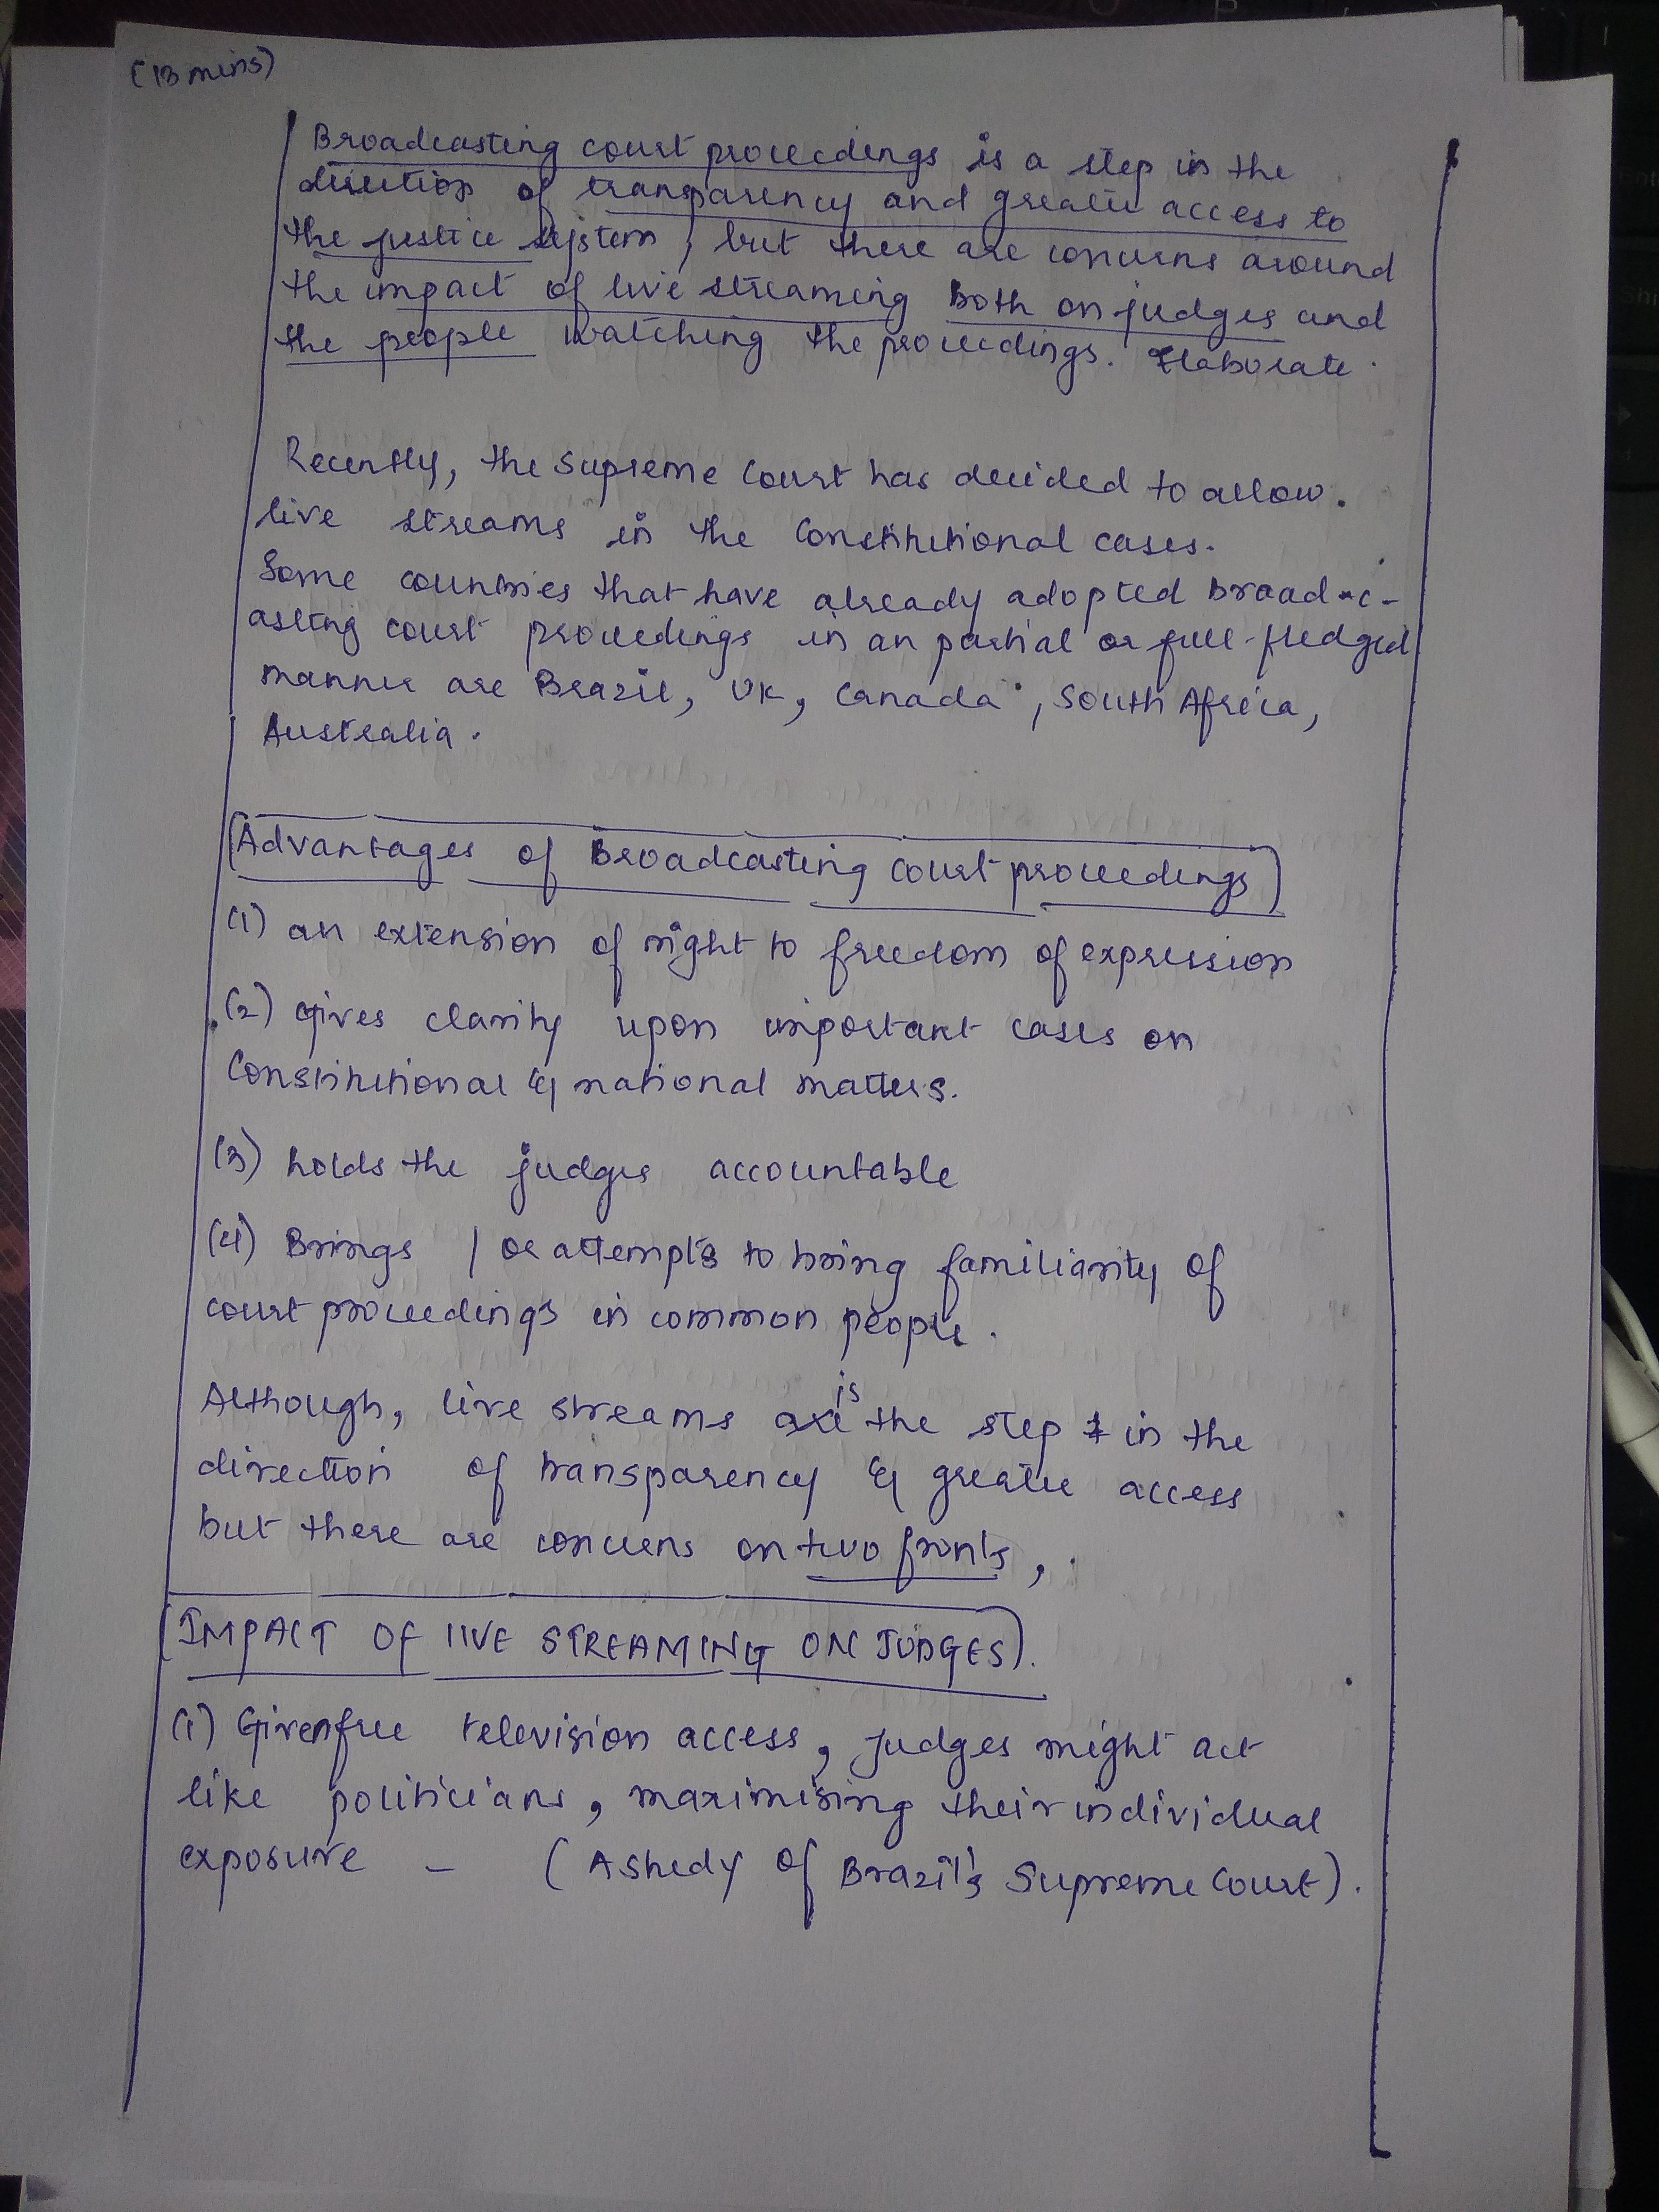 (13 mins)
Broadcasting court proceedings is a step in the
direction of transparency and greater access to
the justice system, but there are concerns around
the impact of live streaming both on judges and
the people watching the proceedings. Elaborate.
Recently, the Supreme Court has decided to allow.
live streams in the Constitutional cases.
Some countries that have already adopted broadc-
asting court proceedings in an partial or full-fledged
manner are Brazil, UK, Canada, South Africa,
Australia.
Advantages of Broadcasting court proceedings
(1) an extension of right to freedom of expression
(2) Gives clarity upon important cases on
Constitutional & national matters.
(3) holds the judges accountable
(4) Brings / or attempts to bring familiarity of
court proceedings in common people.
Although, live streams is the step in the
direction of transparency & greater access
but there are concerns on two fronts,
(IMPACT OF LIVE STREAMING ON JUDGES).
(1) Given free television access, judges might act
like politicians, maximising their individual
exposure - (A study of Brazil's Supreme Court).